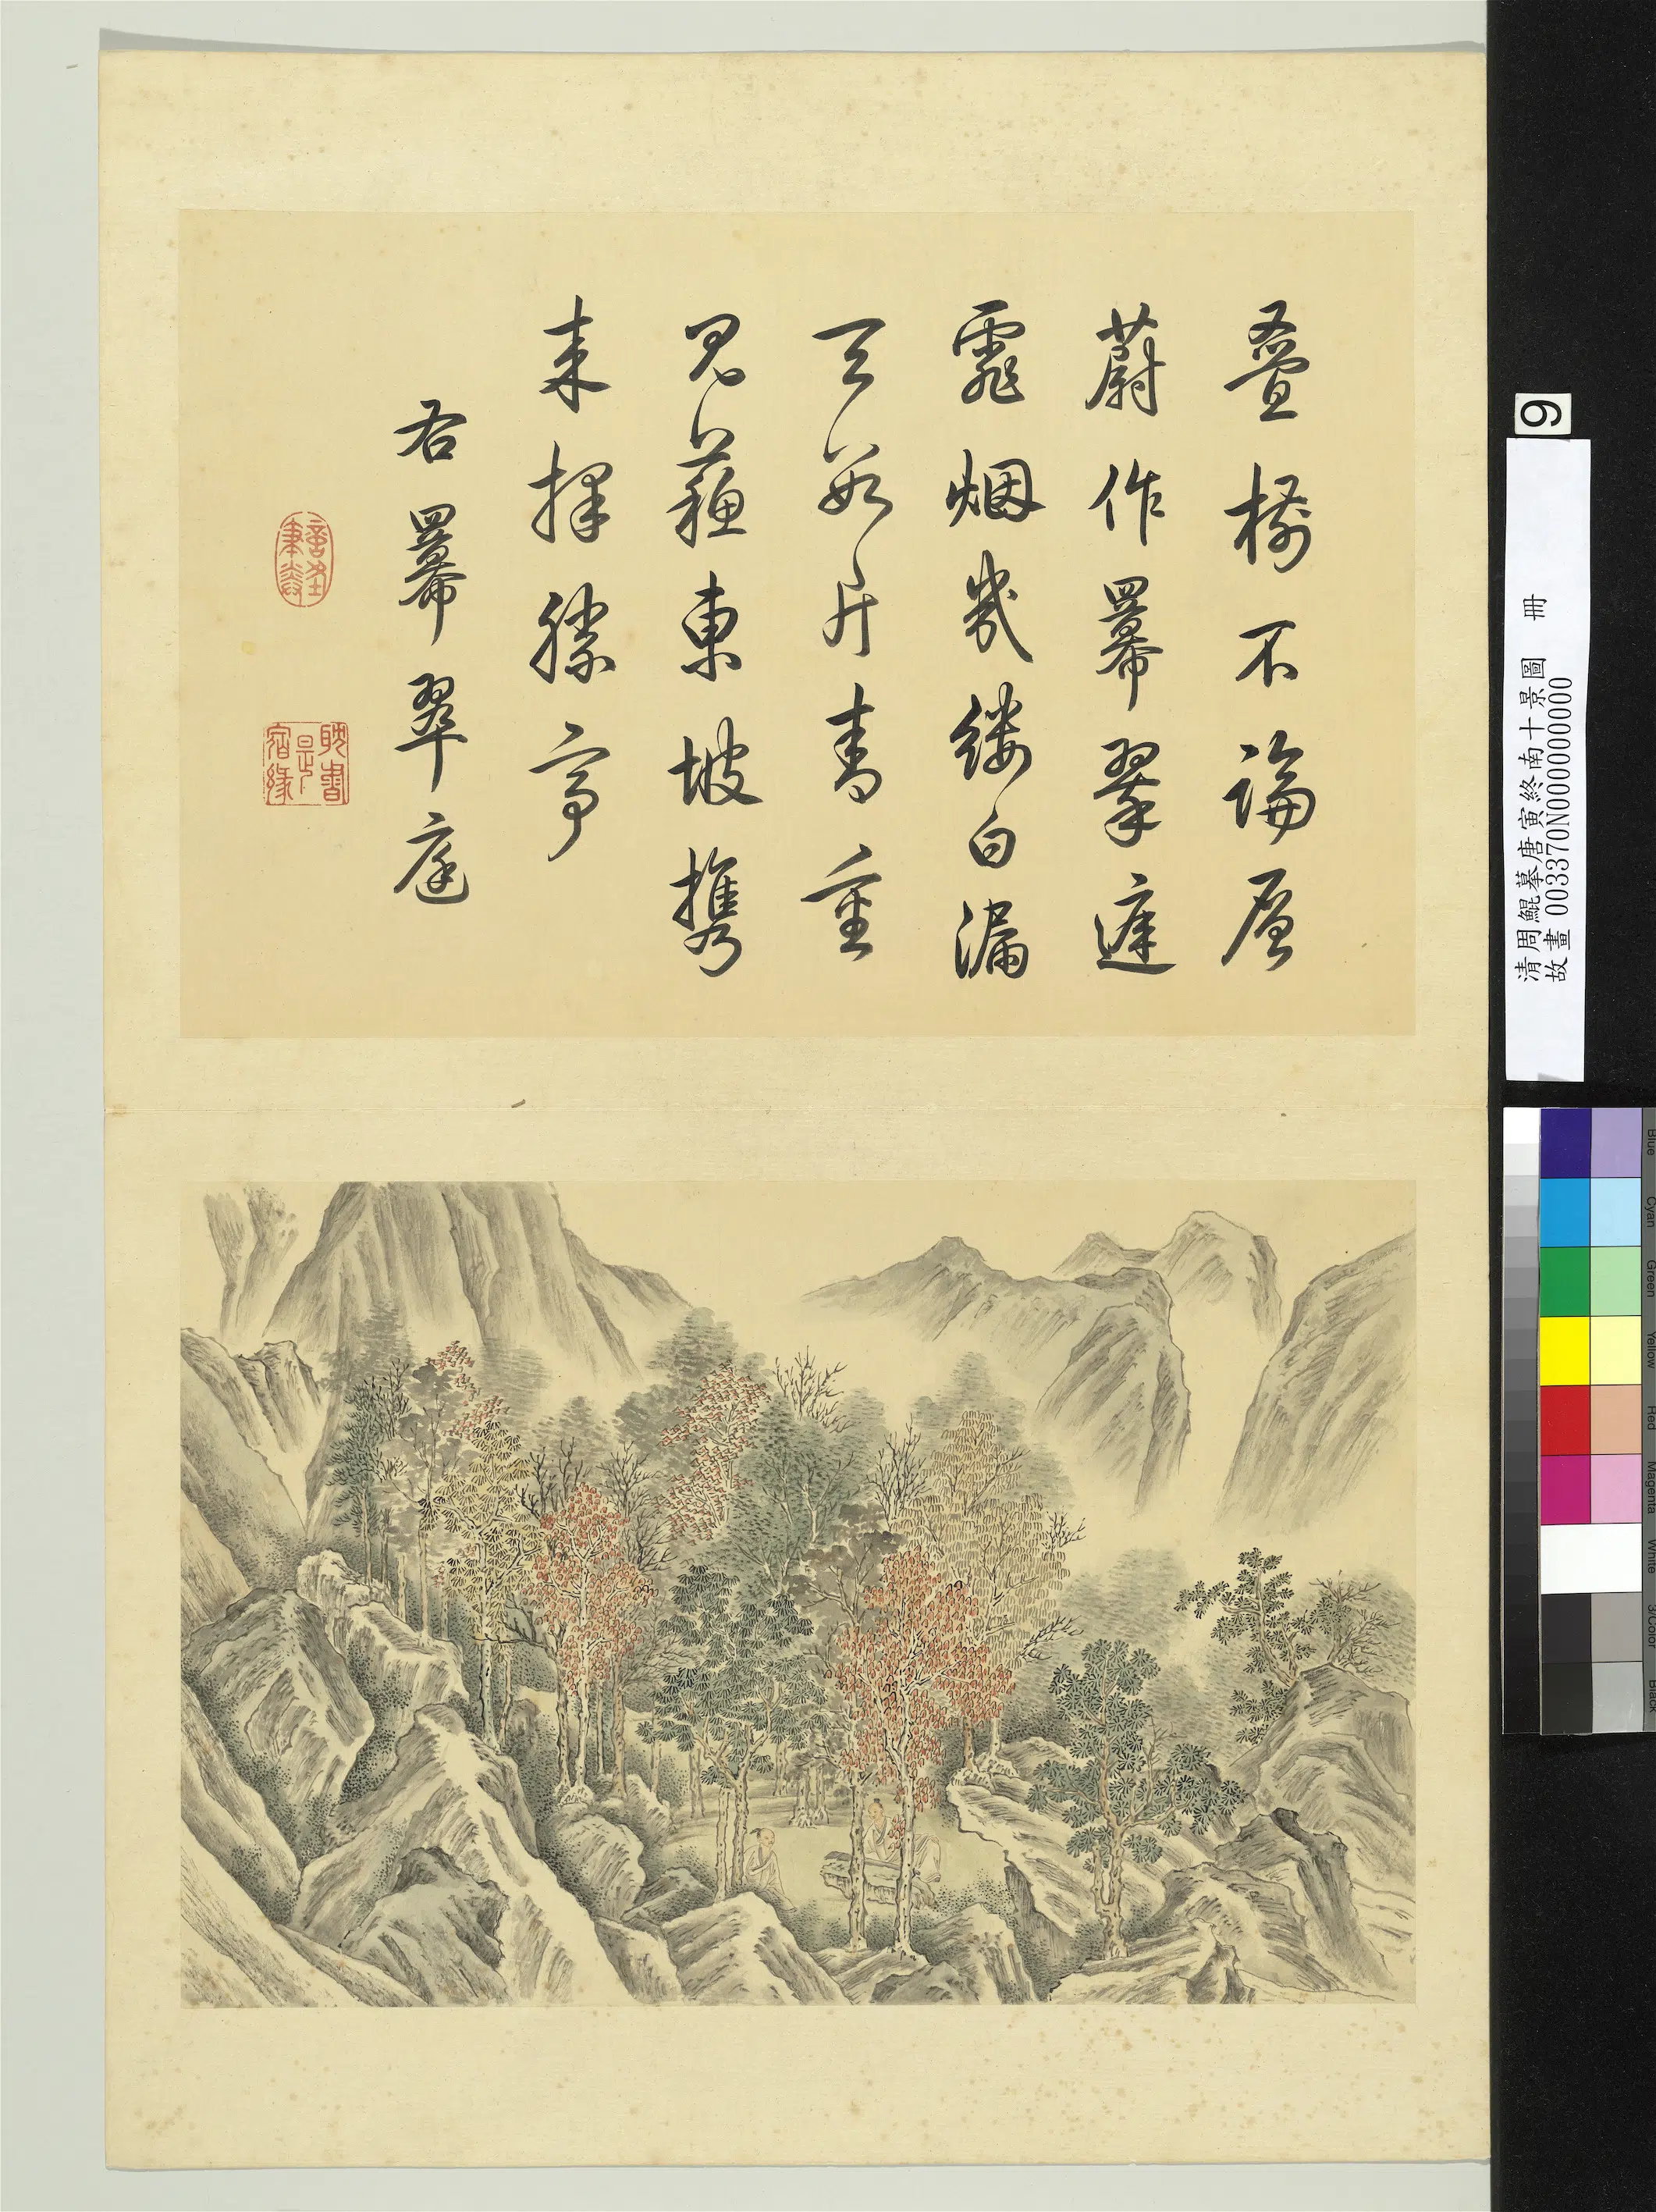 叠樹不論層
蔚作羃翠庭
霏烟幾縷白漏
天數片青重
見蘓東坡携
来擇勝亭
右羃翠庭
耽書是宿緣
9
清周鯤摹唐寅終南十景圖 冊
故畫 003370N000000000
Blue
Cyan
Green
Yellow
Red
Magenta
White
3/Color
Black